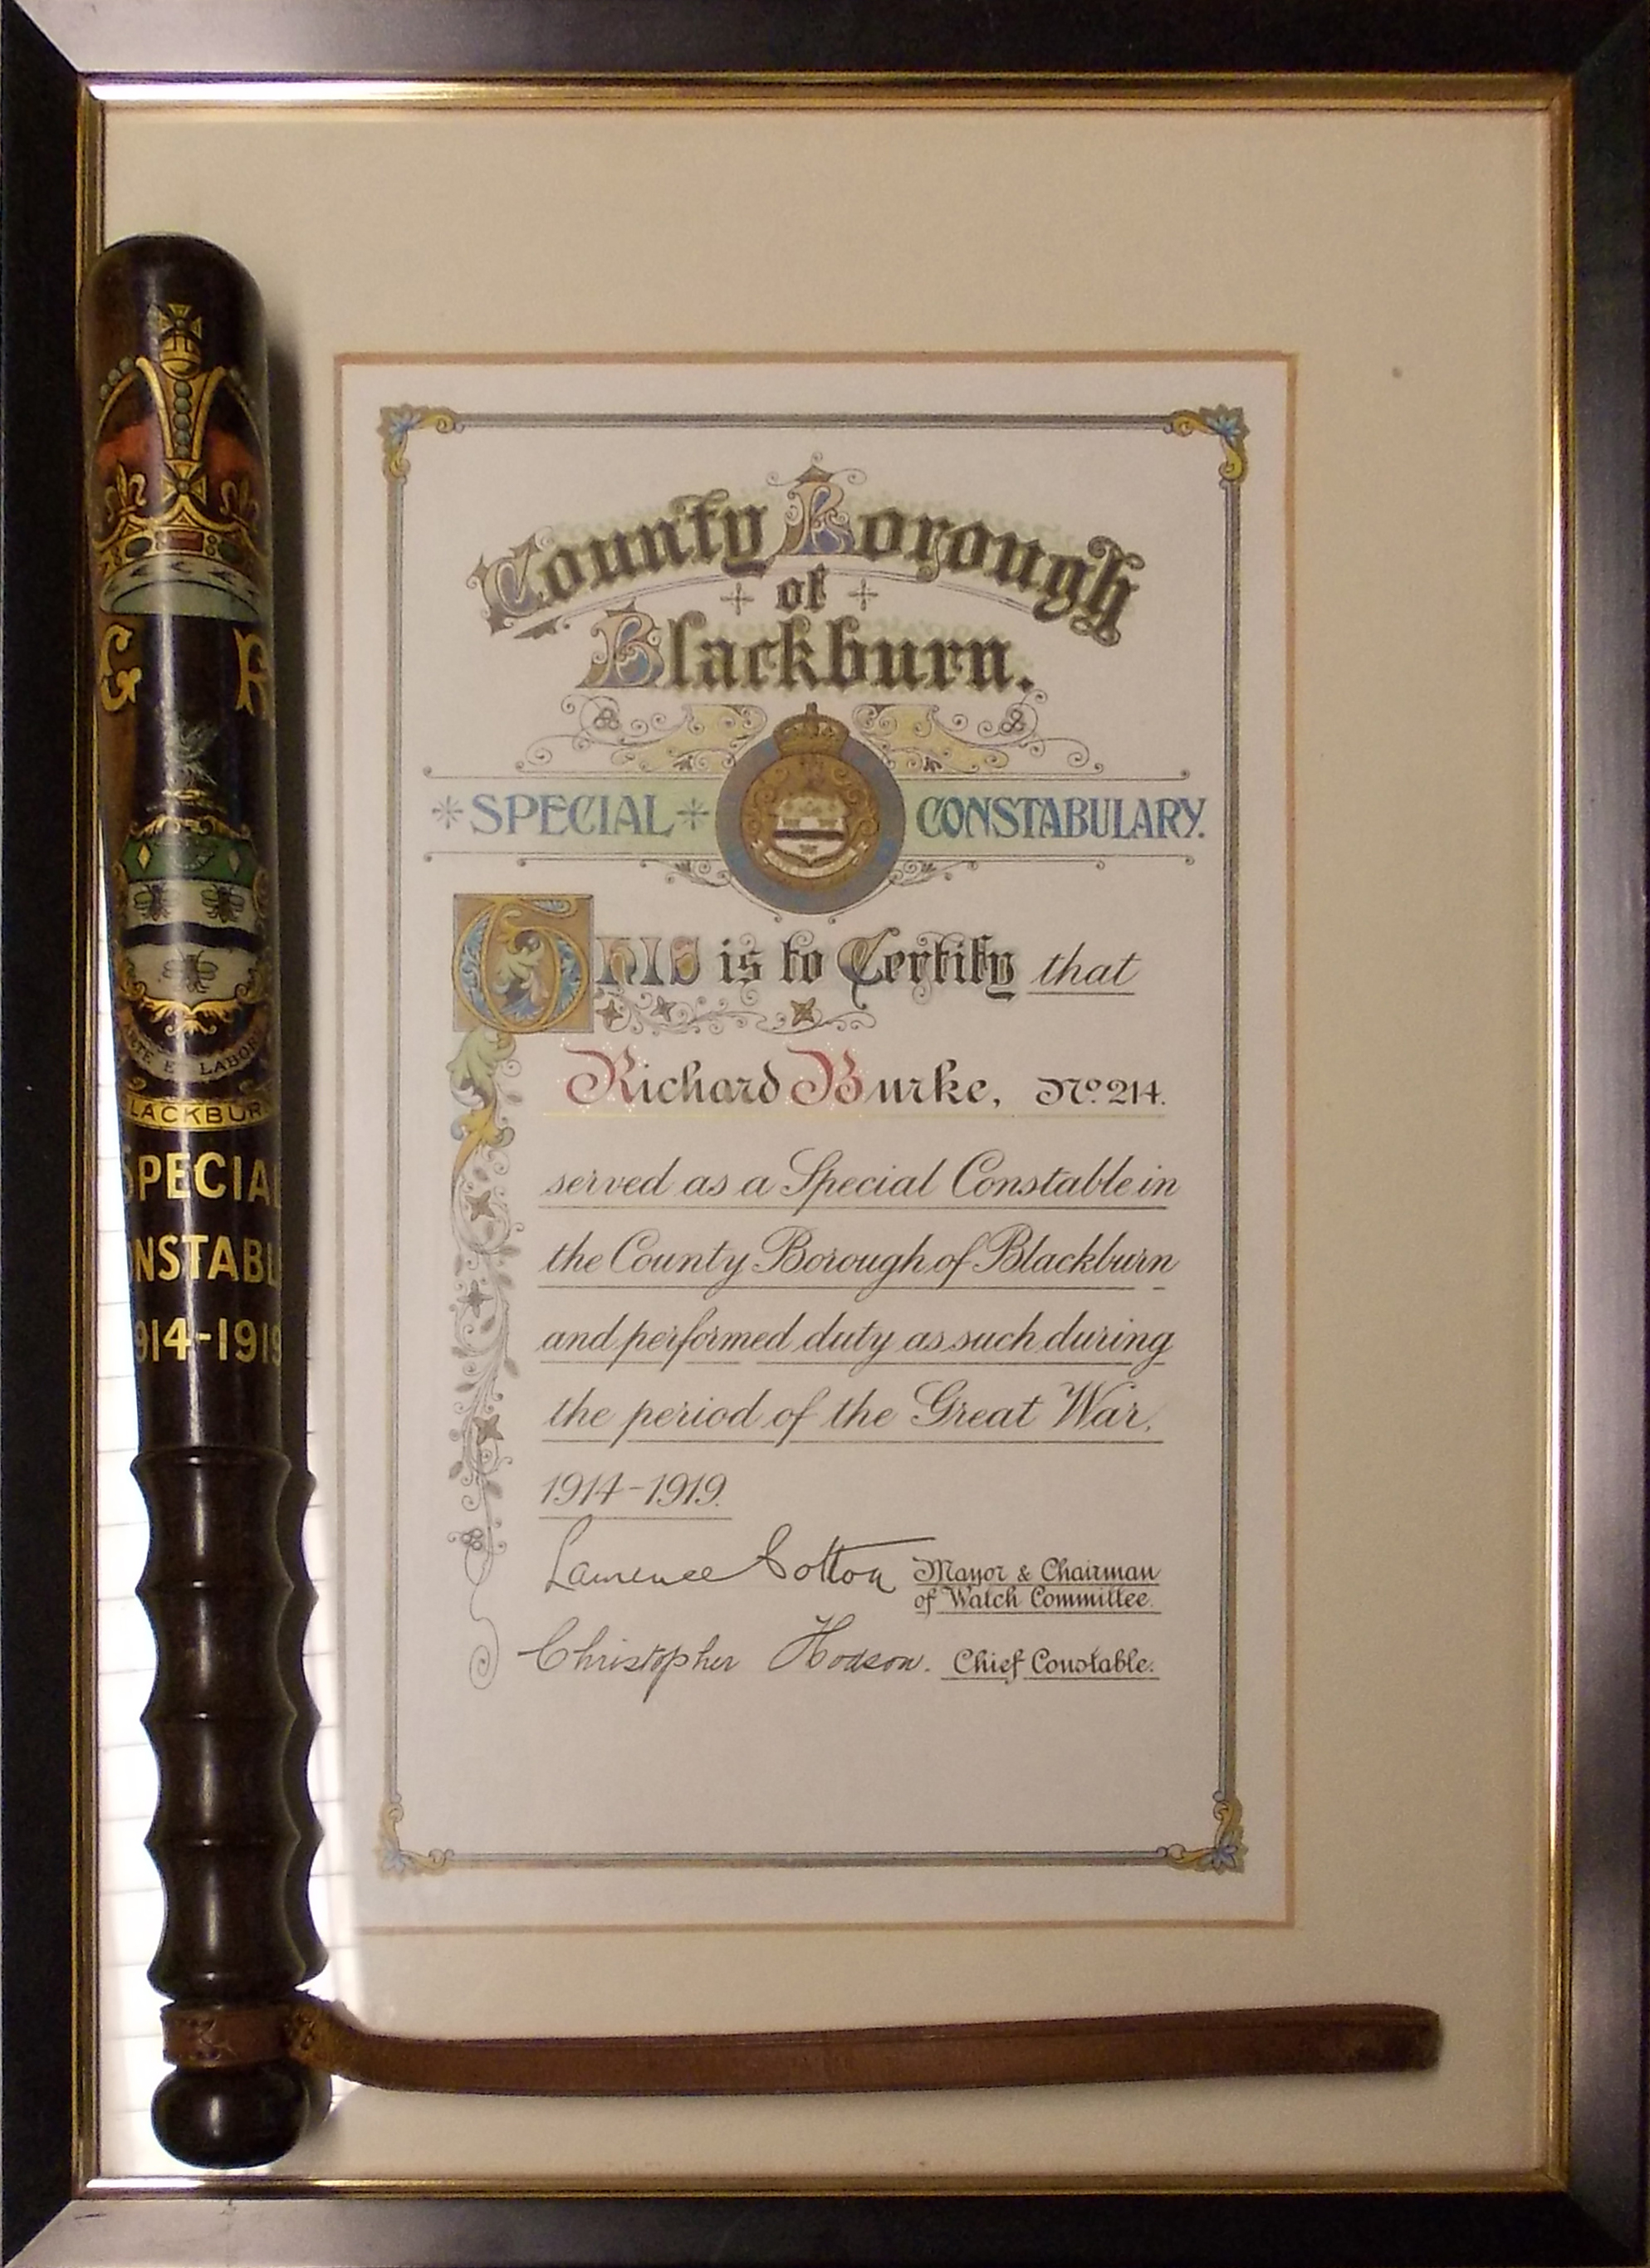 G R
ARTE ET LABORE
LACKBUR
SPECIAL
NSTABL
914-1919
County Borough
of
Blackburn.
SPECIAL CONSTABULARY.
This is to Certify that
Richard Burke, No. 214.
served as a Special Constable in
the County Borough of Blackburn
and performed duty as such during
the period of the Great War.
1914-1919.
Laurence Cotton Mayor & Chairman
of Watch Committee.
Christopher Hodson. Chief Constable.